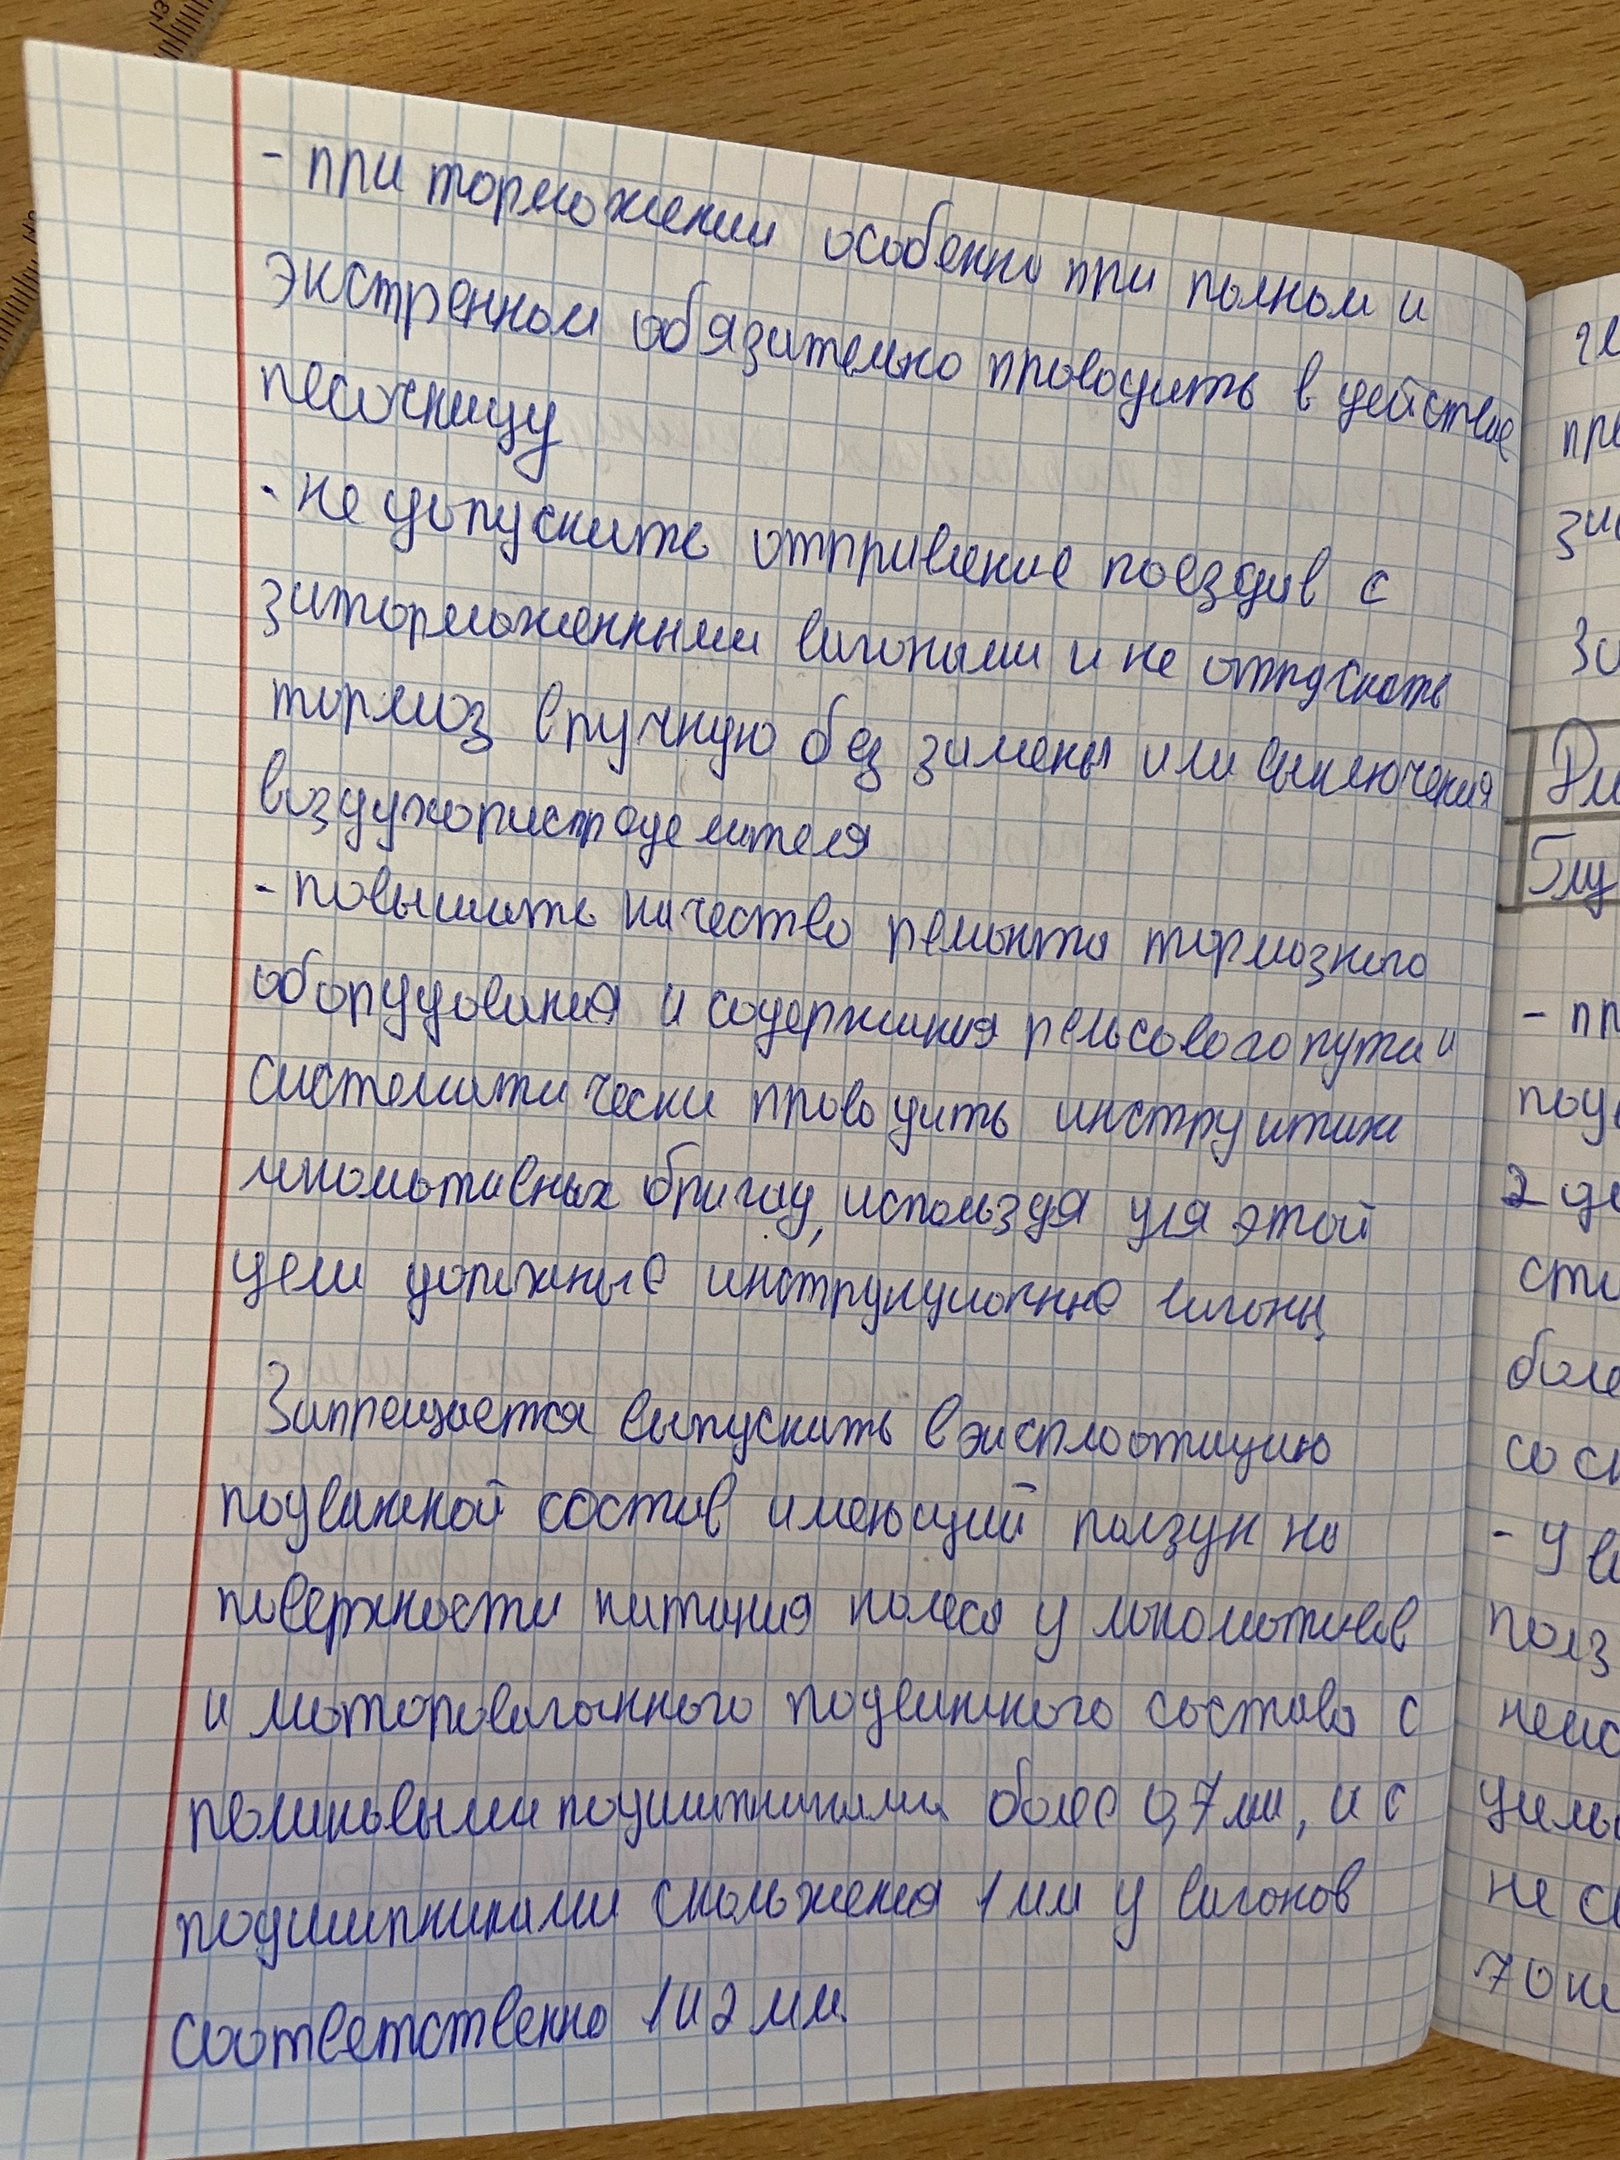 - при торможении особенно при полном и
экстренном обязательно проводить в действие
песочницу
- не допускать отправление поездов с
заторможенными вагонами и не отпускать
тормоз вручную без замены или выключения
воздухораспределителя
- повышать качество ремонта тормозного
оборудования и содержания рельсового пути и
систематически проводить инструктаж
локомотивных бригад, используя для этой
цели должные инструкционные вагоны
Запрещается выпускать в эксплоатацию
подвижной состав имеющий ползун на
поверхности катания колеса у локомотивов
и моторовагонного подвижного состава с
роликовыми подшипниками более 0,7 мм, и с
подшипниками скольжения 1 мм у вагонов
соответственно 1 и 2 мм.